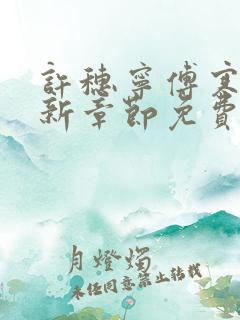 許穗寧傅寒
新章節免費
月燈燭
未經同意禁止轉載